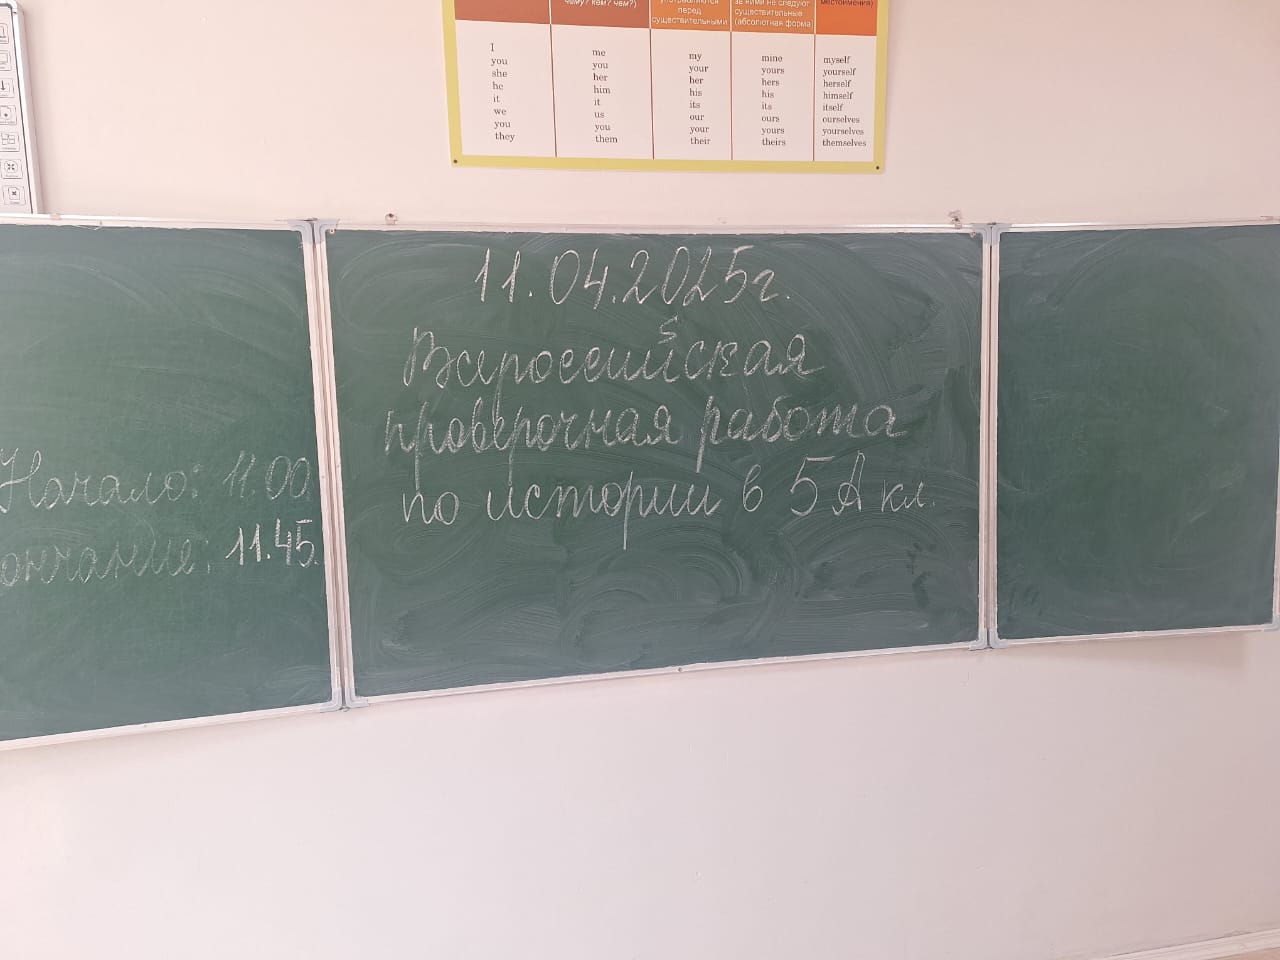 чему? кем? чем?)
употребляются
перед
существительными
за ними не следуют
существительные
(абсолютная форма)
местоимения)
I
you
she
he
it
we
you
they
me
you
her
him
it
us
you
them
my
your
her
his
its
our
your
their
mine
yours
hers
his
its
ours
yours
theirs
myself
yourself
herself
himself
itself
ourselves
yourselves
themselves
Начало: 11.00
ончание: 11.45.
11.04.2025г.
Всероссийская
проверочная работа
по истории в 5А кл.